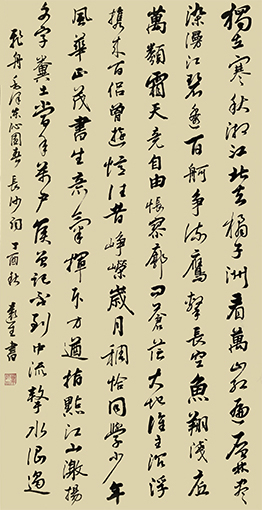 獨立寒秋湘江北去橘子洲看萬山紅遍層林盡
染漫江碧透百舸爭流鷹擊長空魚翔淺底
萬類霜天競自由悵寥廓問蒼茫大地誰主沉浮
携來百侣曾遊憶往昔崢嶸歲月稠恰同學少年
風華正茂書生意氣揮斥方遒指點江山激揚
文字糞土當年萬户侯曾記否到中流擊水浪遏
飛舟 毛澤東沁園春 長沙詞 丁酉秋 書